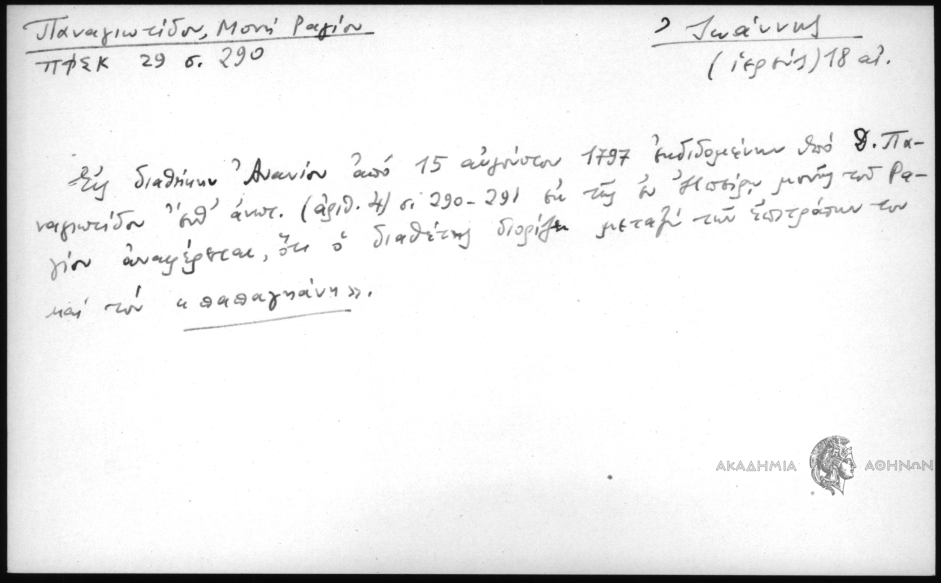 Παναγιωτίδου, Μονή Ραγίου
ΠΦΣΚ 29 σ. 290
Ἰωάννης
(ἱερεύς) 18 αἰ.
Εἰς διαθήκην Ἀνανίου ἀπό 15 αὐγούστου 1797 ἐκδιδομένην ὑπό Δ. Πα-
ναγιωτίδου ἔνθ' ἀνωτ. (ἀριθ. 4) σ. 290-291 ἐκ τῆς ἐν Ἠπείρῳ μονῆς τοῦ Ρα-
γίου ἀναφέρεται, ὅτι ὁ διαθέτης διορίζει μεταξύ τῶν ἐπιτρόπων του
καί τόν «παπαγιάνη».
ΑΚΑΔΗΜΙΑ ΑΘΗΝΩΝ